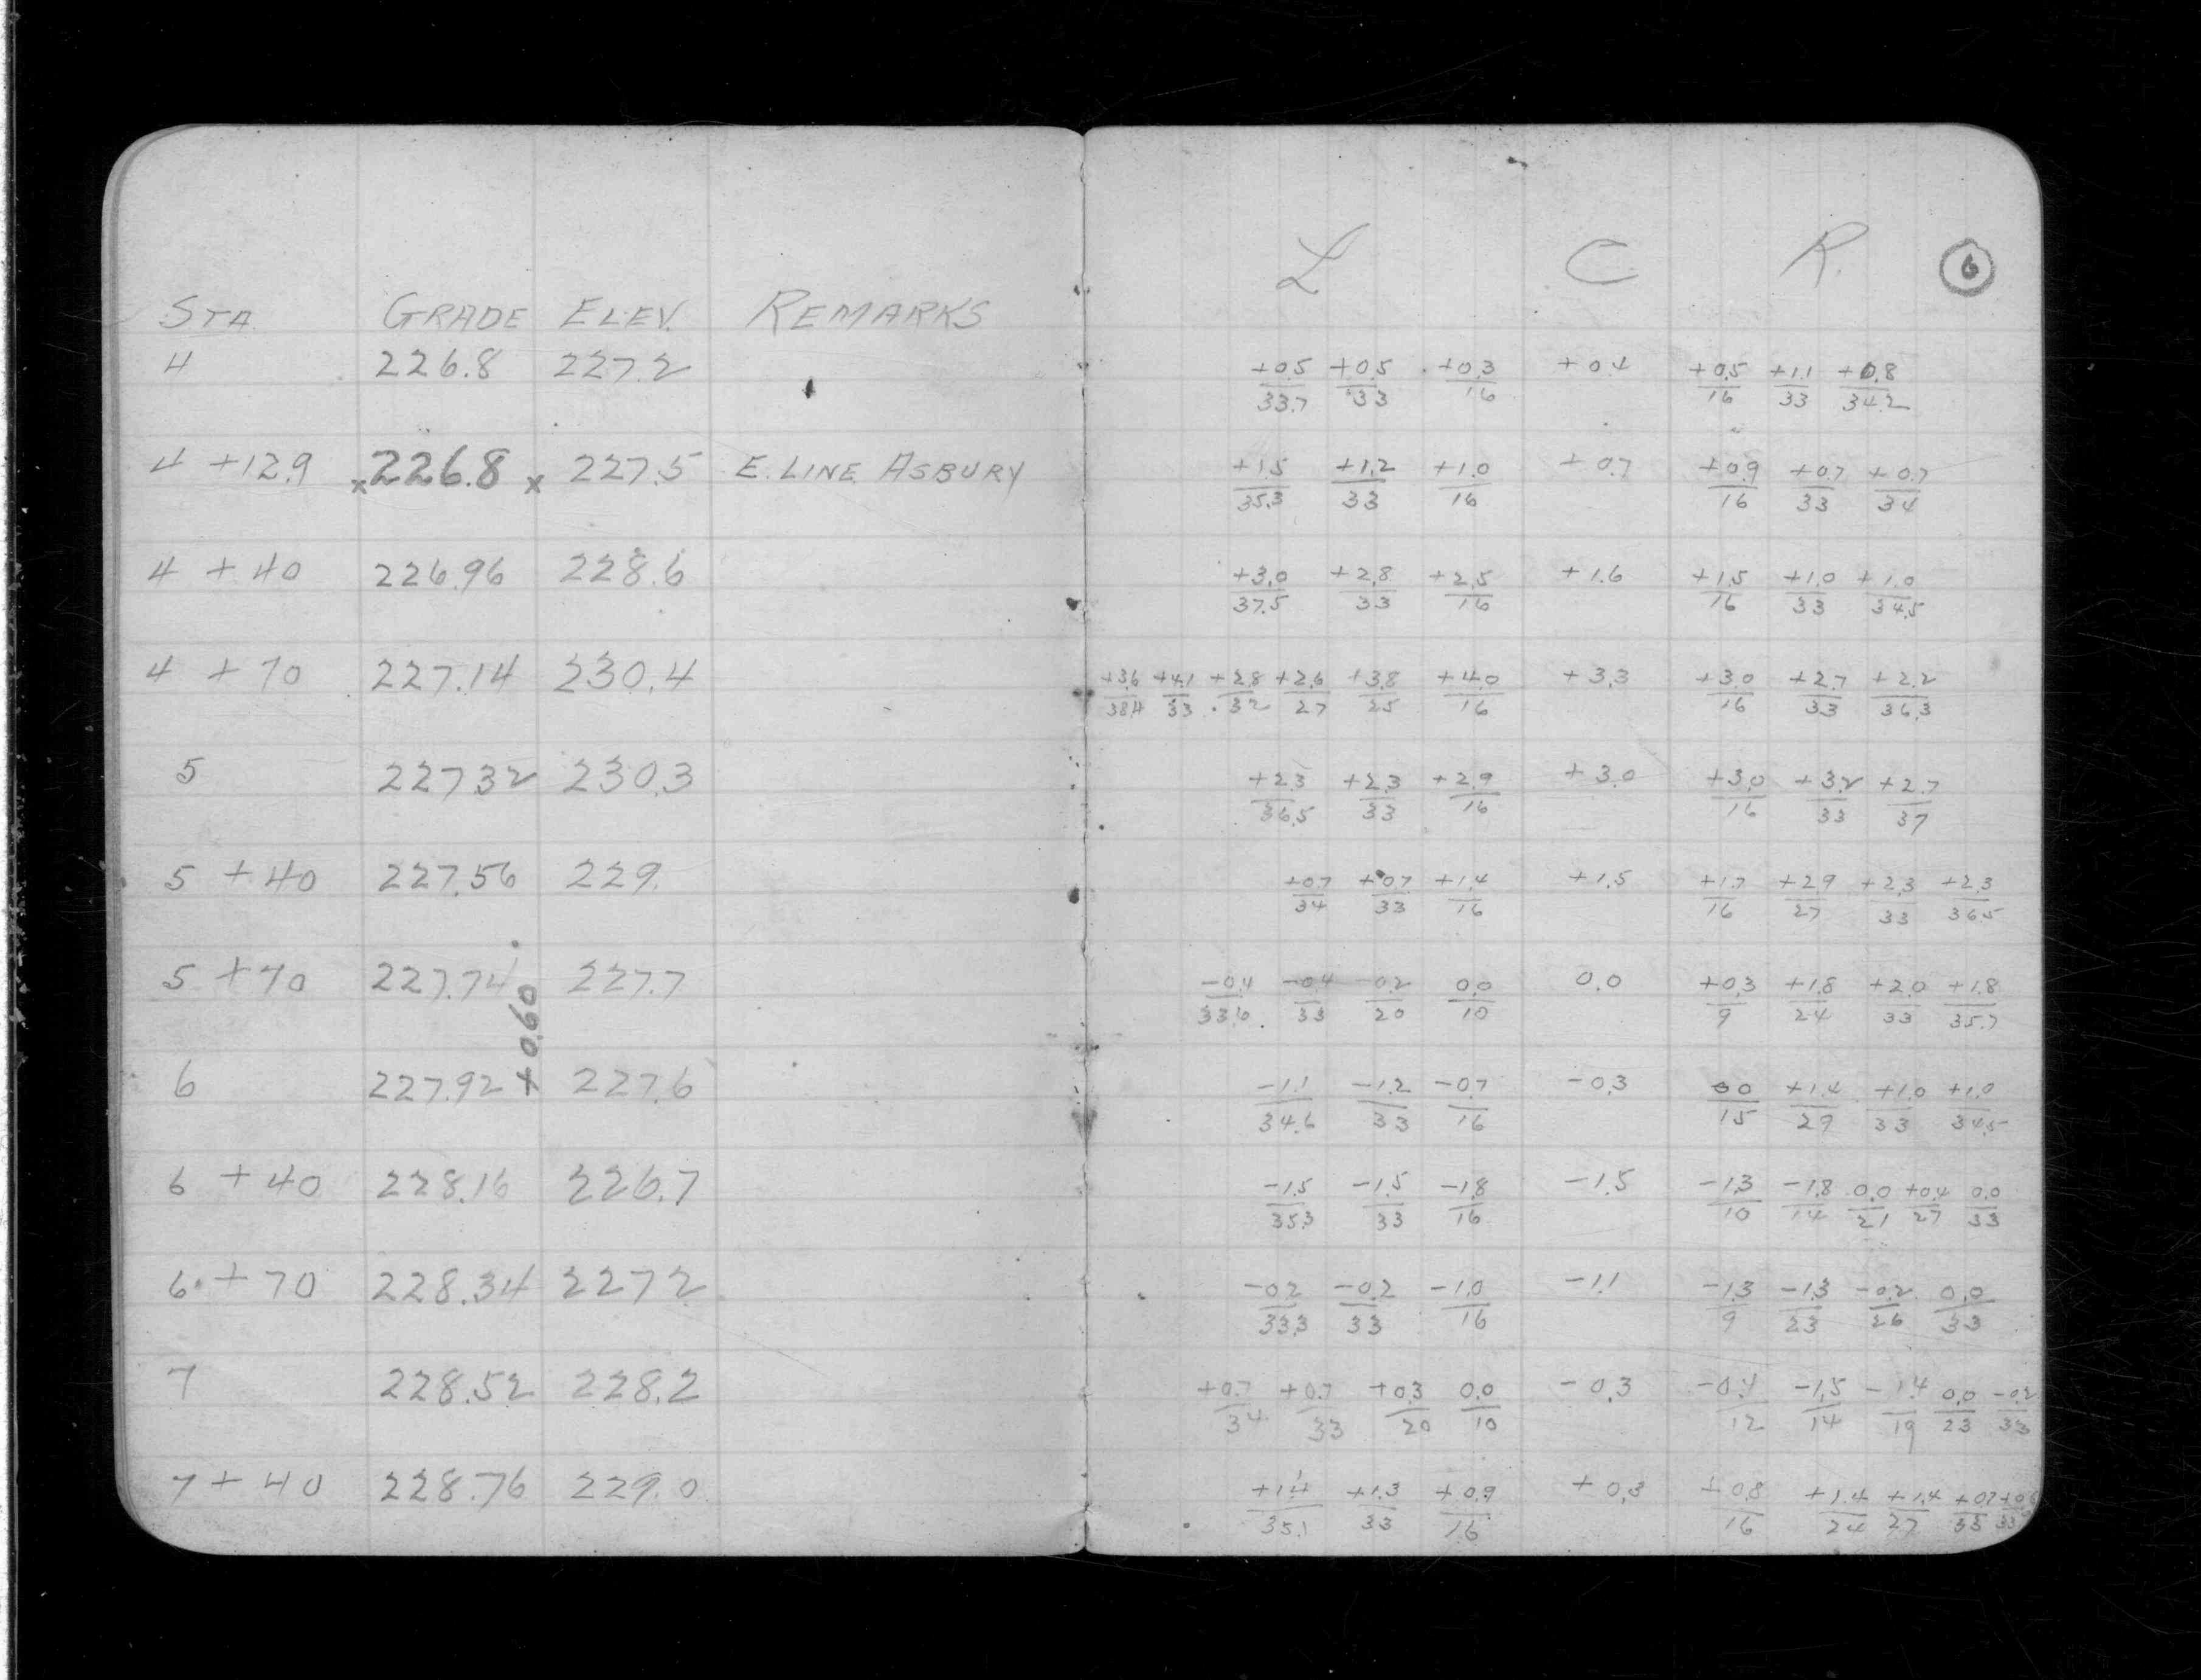 L C R. 6
STA. GRADE ELEV. REMARKS
4 226.8 227.2 +0.5/33.7 +0.5/33 +0.3/16 +0.4 +0.5/16 +1.1/33 +0.8/34.2
4 +12.9 x226.8 x 227.5 E. LINE ASBURY +1.5/35.3 +1.2/33 +1.0/16 +0.7 +0.9/16 +0.7/33 +0.7/34
4 +40 226.96 228.6 +3.0/37.5 +2.8/33 +2.5/16 +1.6 +1.5/16 +1.0/33 +1.0/34.5
4 +70 227.14 230.4 +3.6/38.4 +4.1/33 +2.8/32 +2.6/27 +3.8/25 +4.0/16 +3.3 +3.0/16 +2.7/33 +2.2/36.3
5 227.32 230.3 +2.3/36.5 +2.3/33 +2.9/16 +3.0 +3.0/16 +3.2/33 +2.7/37
5 +40 227.56 229. +0.7/34 +0.7/33 +1.4/16 +1.5 +1.7/16 +2.9/27 +2.3/33 +2.3/36.5
5 +70 227.74 227.7 -0.4/33.6 -0.4/33 -0.2/20 0.0/10 0.0 +0.3/9 +1.8/24 +2.0/33 +1.8/35.7
+0.60
6 227.92 227.6 -1.1/34.6 -1.2/33 -0.7/16 -0.3 0.0/15 +1.4/29 +1.0/33 +1.0/34.5
6 +40 228.16 226.7 -1.5/35.3 -1.5/33 -1.8/16 -1.5 -1.3/10 -1.8/14 0.0/21 +0.4/27 0.0/33
6 +70 228.34 227.2 -0.2/33.3 -0.2/33 -1.0/16 -1.1 -1.3/9 -1.3/23 -0.2/26 0.0/33
7 228.52 228.2 +0.7/34 +0.7/33 +0.3/20 0.0/10 -0.3 -0.4/12 -1.5/14 -1.4/19 0.0/23 -0.2/33
7 +40 228.76 229.0 +1.4/35.1 +1.3/33 +0.9/16 +0.3 +0.8/16 +1.4/24 +1.4/27 +0.7/33